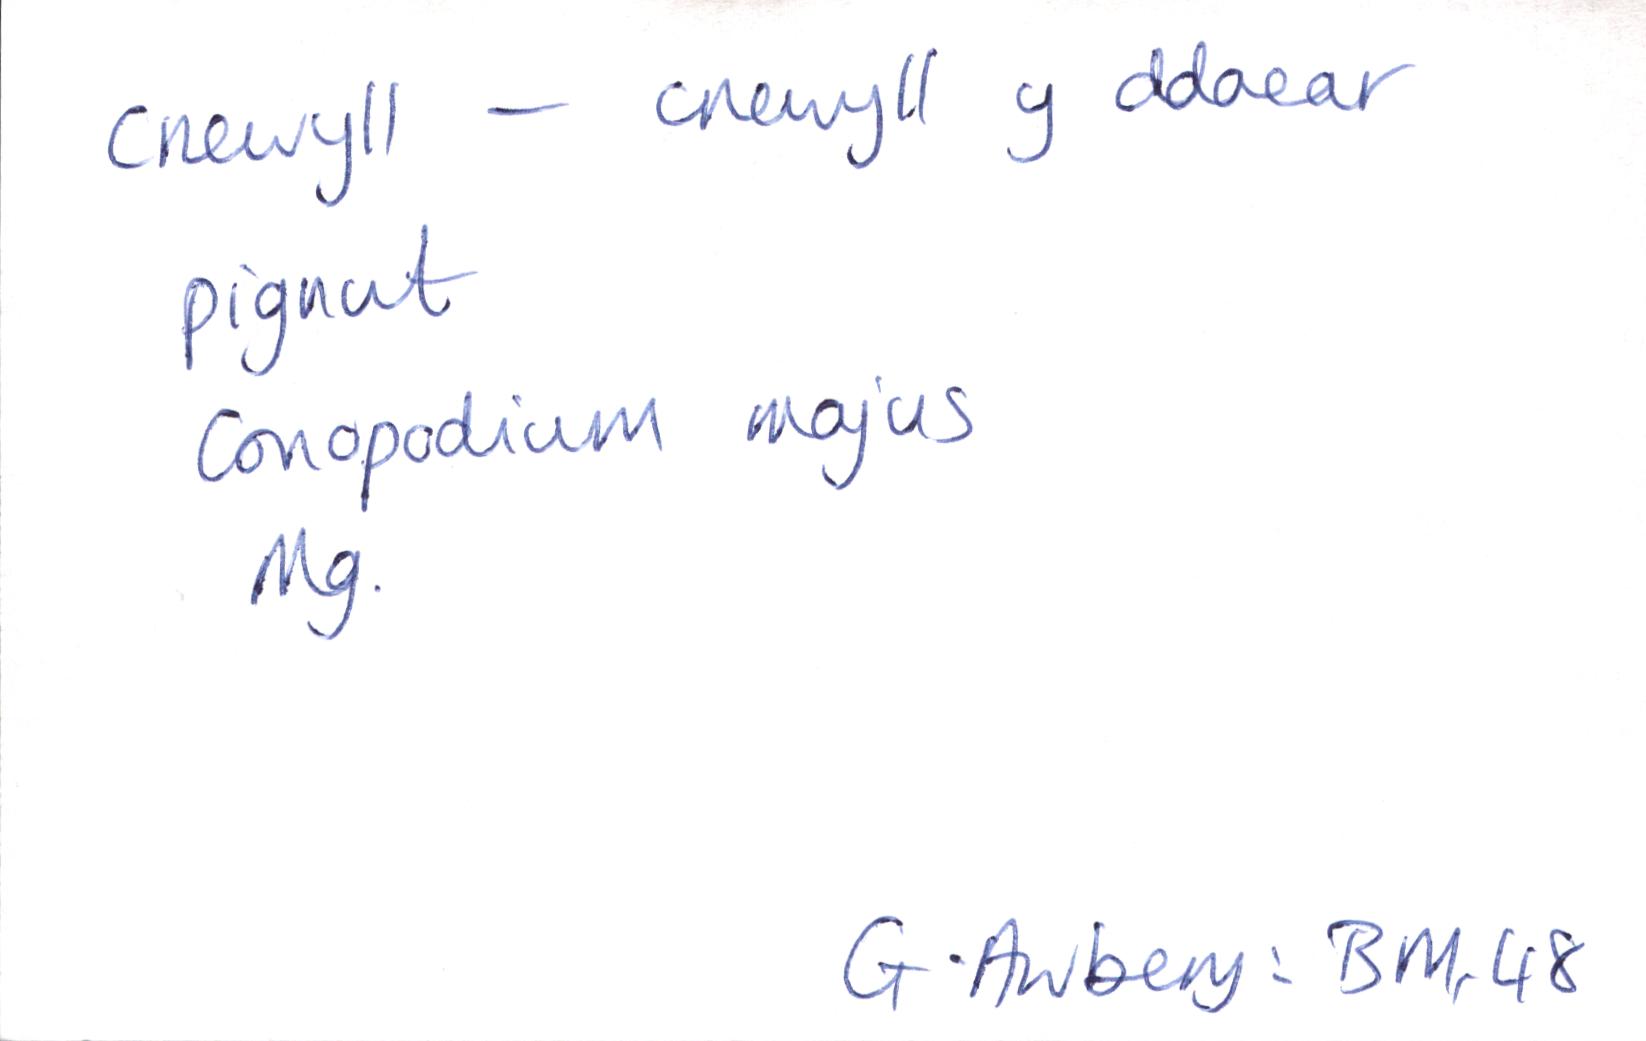 Cnewyll – cnewyll y ddaear
pignut
Conopodium majus
Mg.
G. Awbery: BM, 48